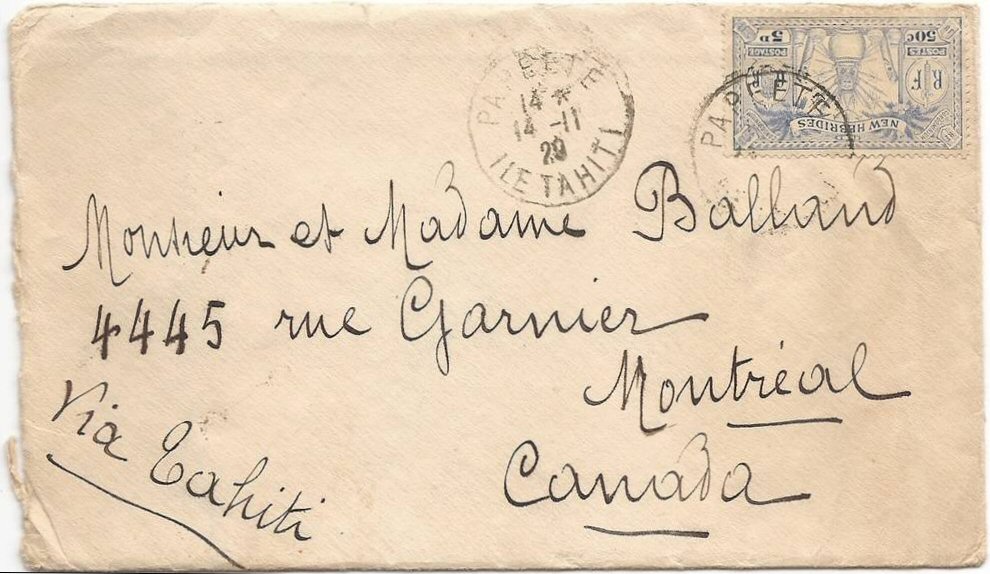 PAPEETE
14 *
14 -11
29
ILE TAHITI
PAPEETE
POSTAGE
5D
50c
POSTES
R F
NEW HEBRIDES
Monsieur et Madame Balland
4445 rue Garnier
Montréal
Canada
Via Tahiti